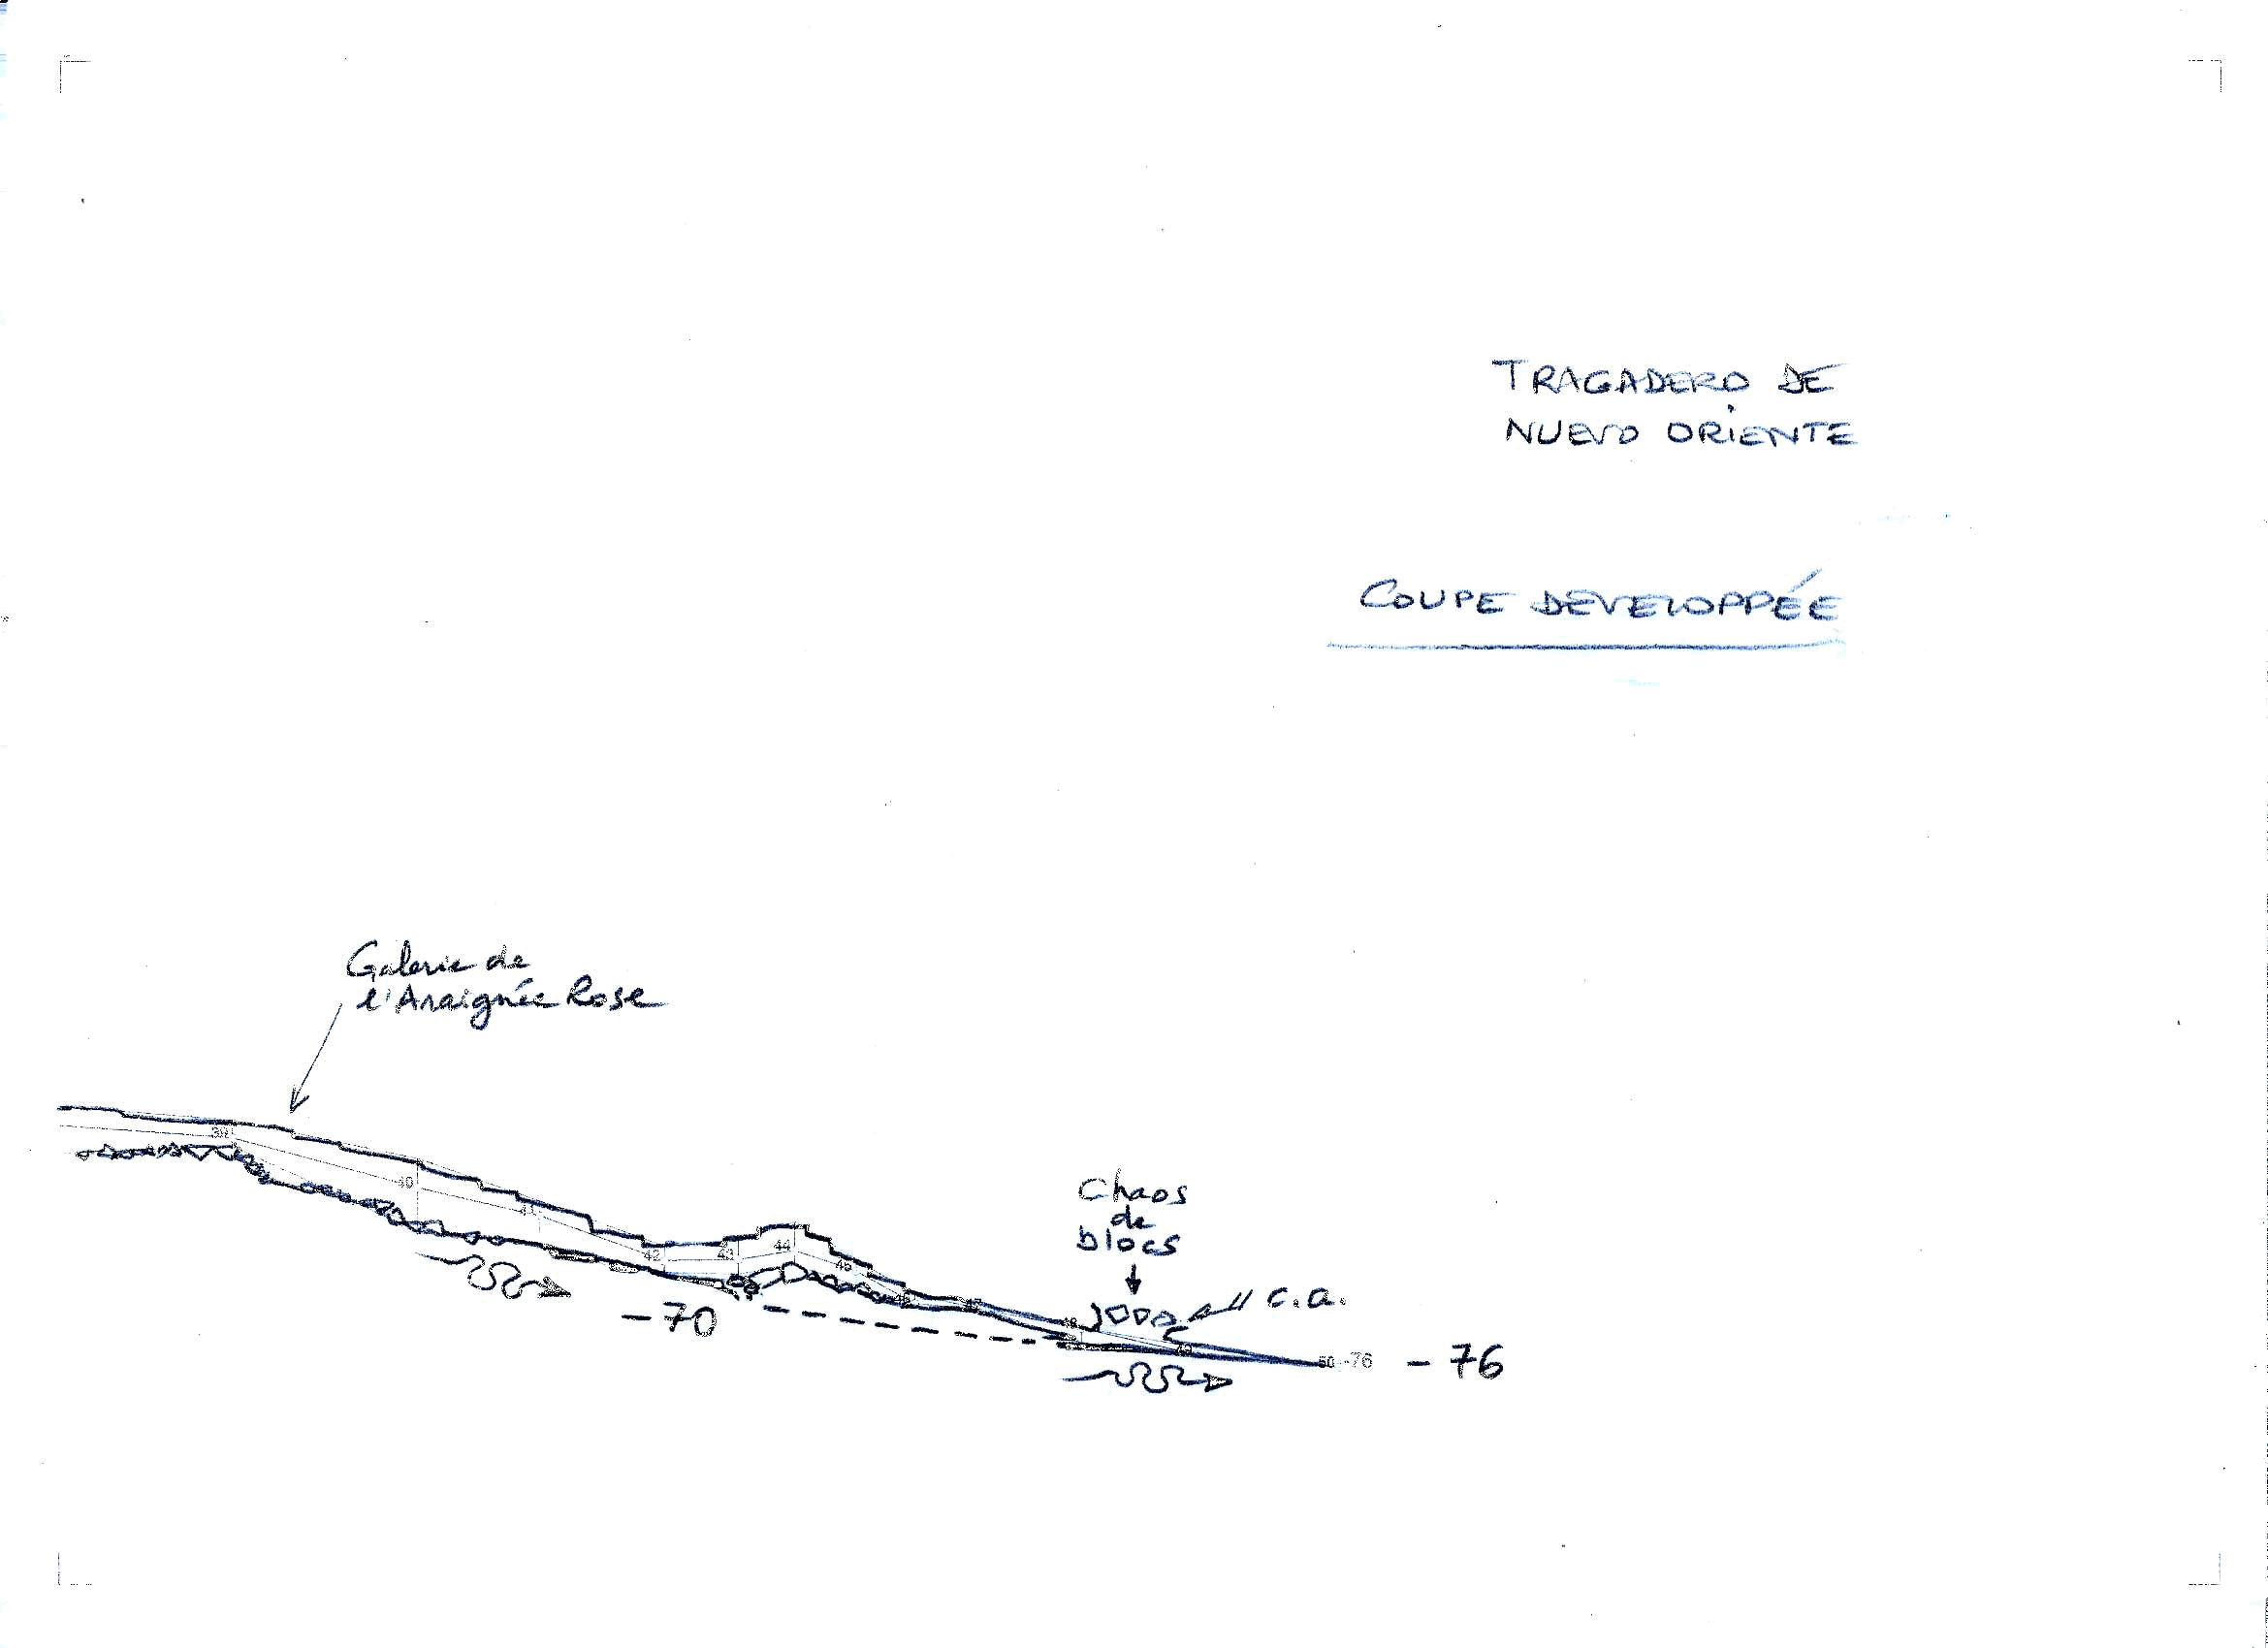 TRAGADERO DE
NUEVO ORIENTE
COUPE DEVELOPPÉE
Galerie de
l'Araignée Rose
39
40
41
42
43
44
45
Chaos
de
blocs
c.a.
-70
48
49
50 -76
-76